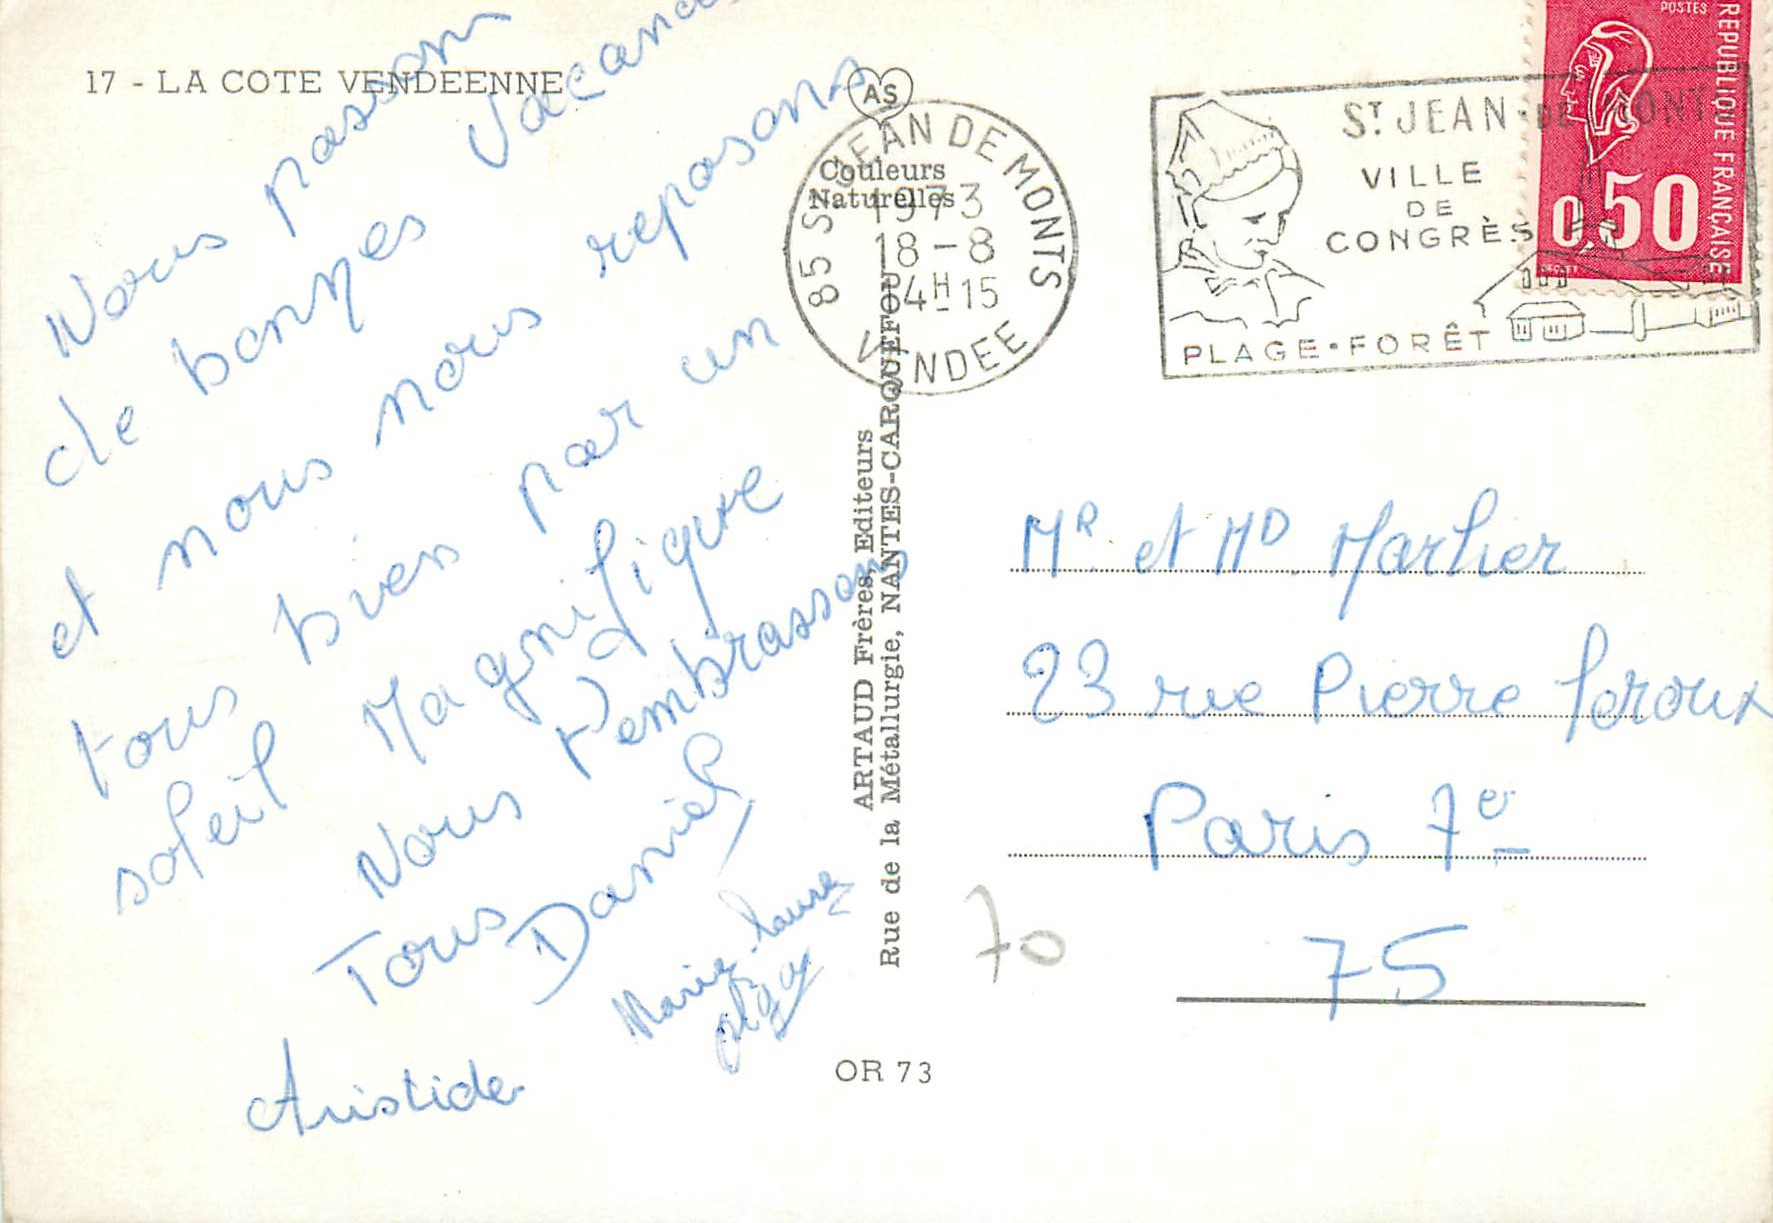 17 - LA COTE VENDEENNE
Nous passons
de bonnes vacances
et nous nous reposons
tous bien par un
soleil Magnifique
Nous t'embrassons
Tous
Daniel
Marie-Laure
Olga
Aristide
AS
Couleurs
Naturelles
ARTAUD Frères, Editeurs
Rue de la Métallurgie, NANTES-CARQUEFOU
OR 73
85 ST JEAN DE MONTS
1973
18-8
14H15
VENDEE
ST JEAN-DE MONTS
VILLE
DE
CONGRÈS
PLAGE·FORÊT
POSTES
REPUBLIQUE FRANÇAISE
0,50
MR et MD Marlier
23 rue Pierre Leroux
Paris 7e
75
70